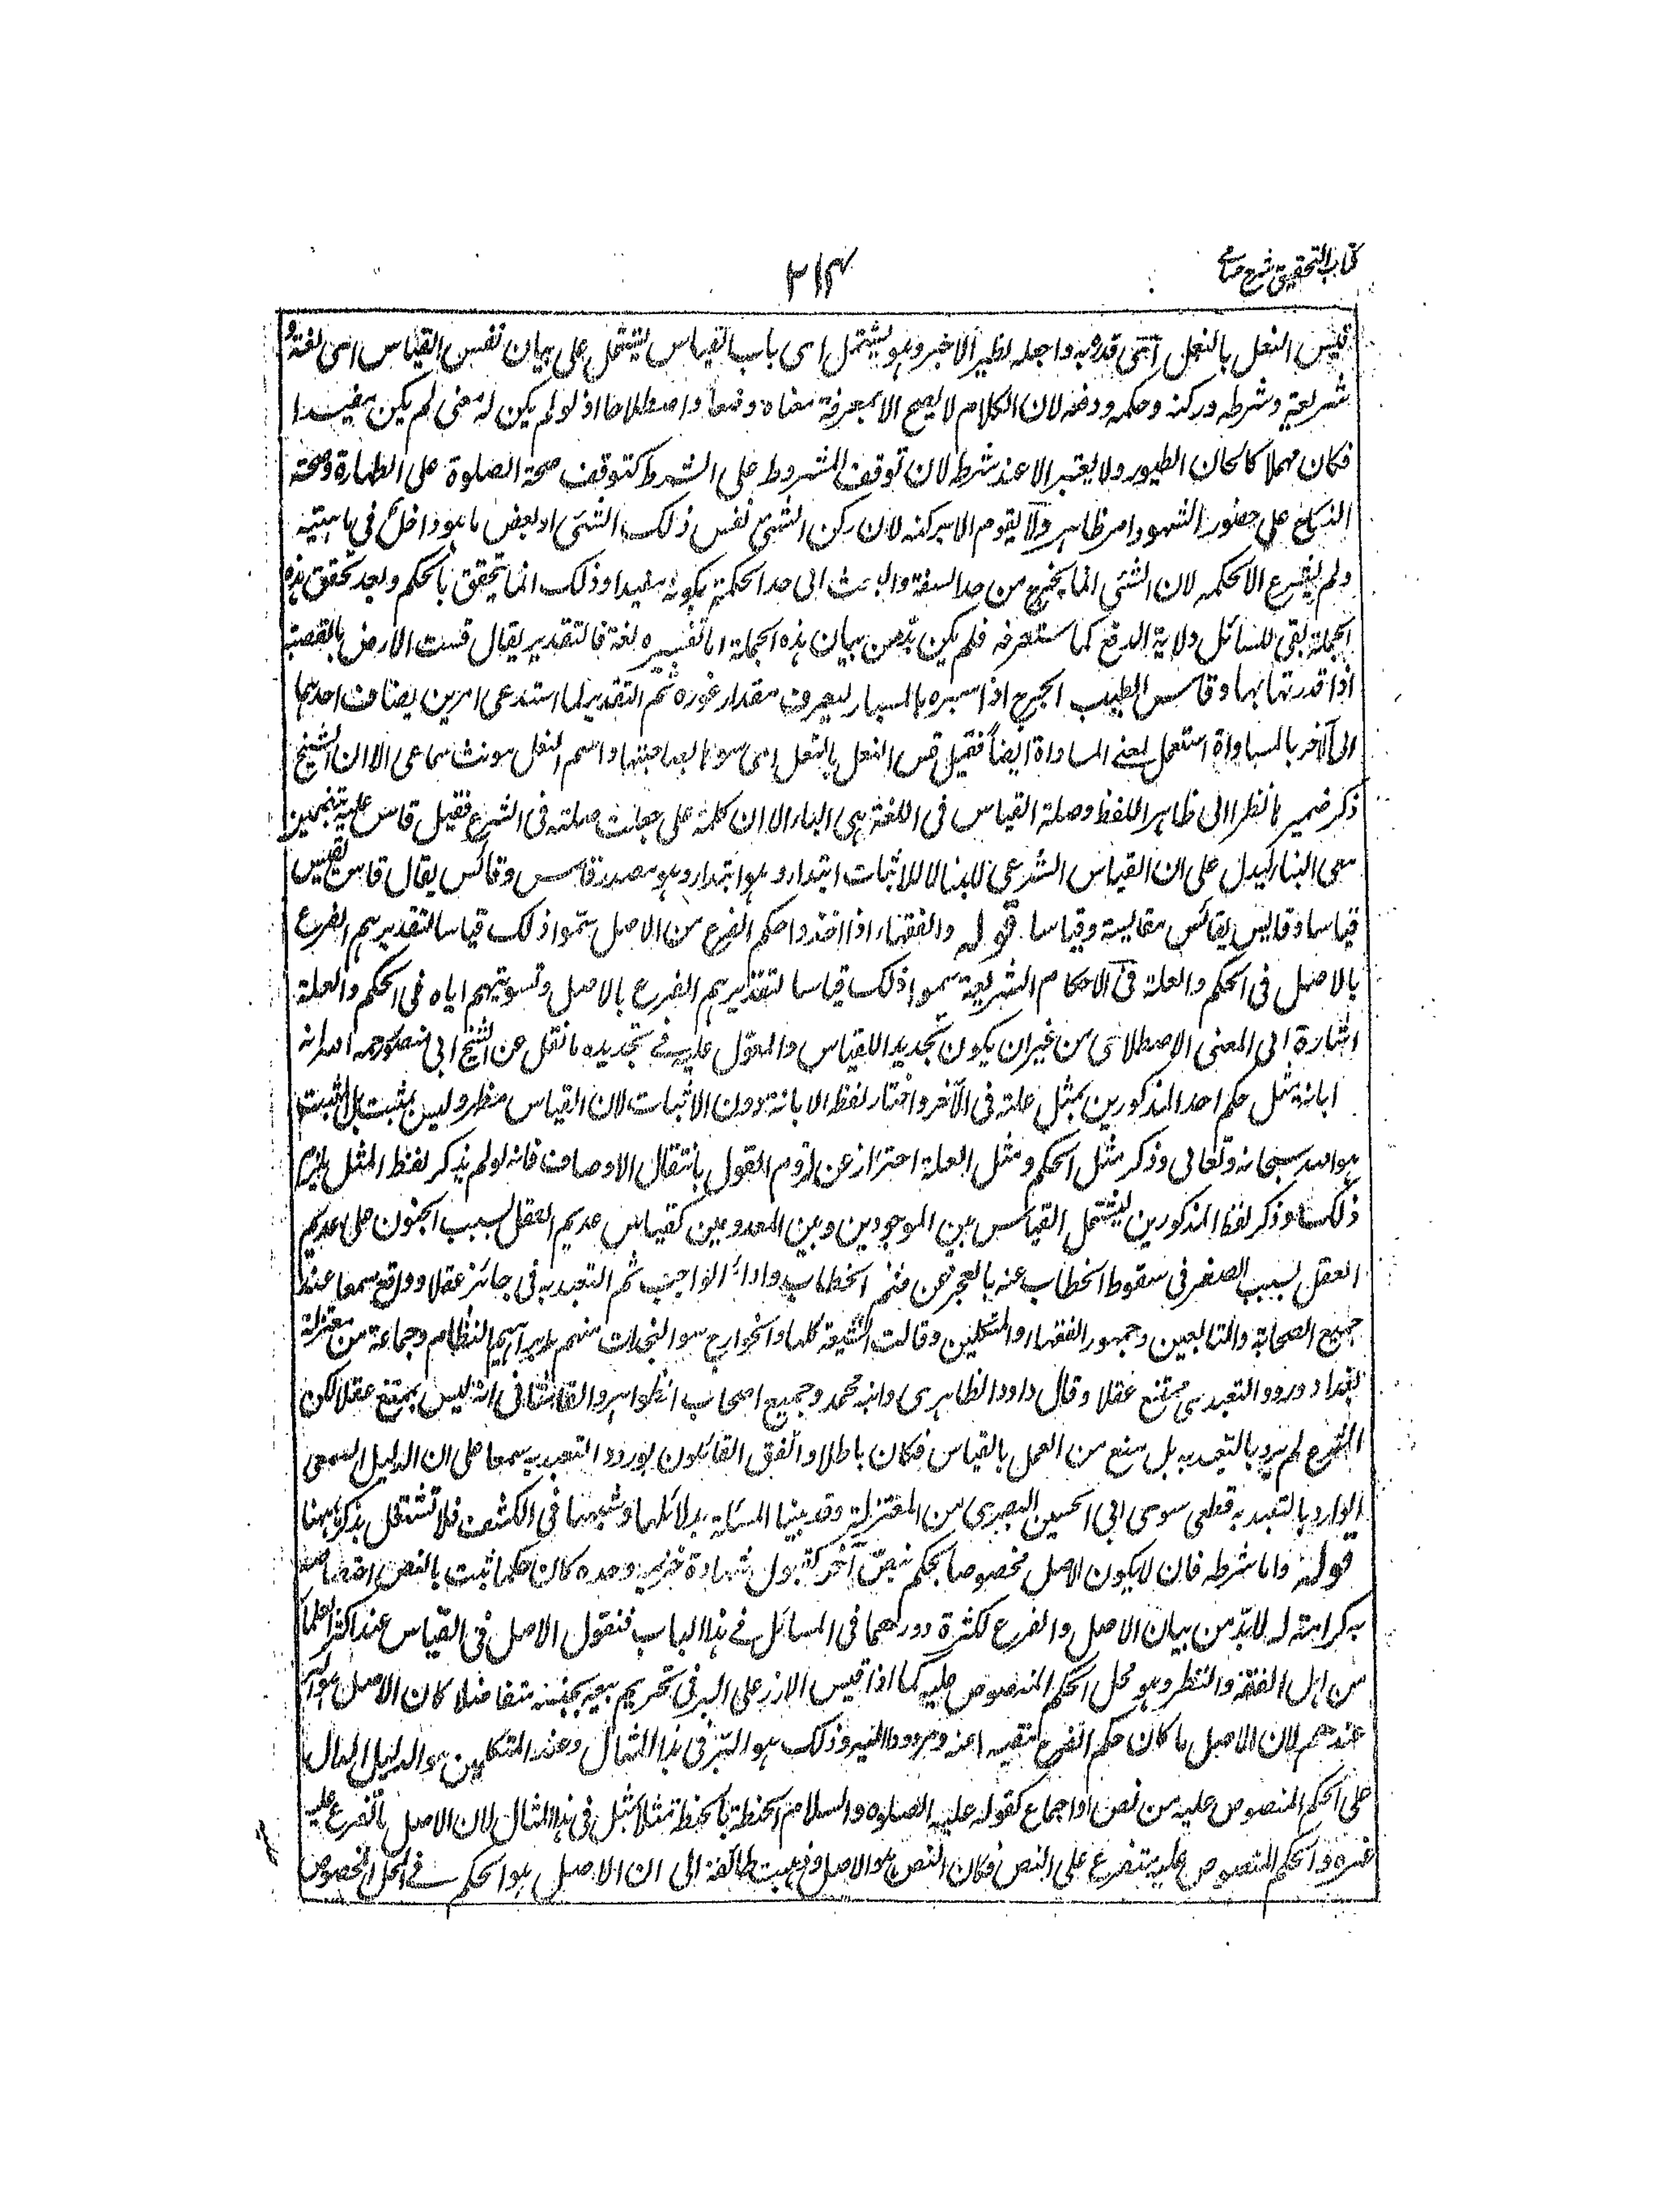 كتاب التحقيق شرح حسامى
٢١٤
قيس النعل بالنعل اى قدره به واجعله نظير الآخر وهو يشتمل اى باب القياس ليشتمل على بيان نفس القياس اى لغة و
شريعة وشرطه وركنه وحكمه ودفعه لان الكلام لا يصح الا بمعرفة معناه وضعا واصطلاحا اذ لو لم يكن له معنى لم يكن مفيدا
فكان مهملا كالحان الطيور ولا يعتبر الا عند شرطه لان توقف المشروط على الشرط كتوقف صحة الصلوة على الطهارة وصحة
النكاح على حضور الشهود امر ظاهر ولا يقوم الا بركنه لان ركن الشئ نفس ذلك الشئ او بعض ما هو داخل فى ماهيته
ولم يشرع الا لحكمه لان الشئ انما يخرج من حد السفه والعبث الى حد الحكمة بكونه مفيدا وذلك انما يتحقق بالحكم وبعد تحقق هذه
الجملة بقى للسائل ولاية الدفع كما ستعرفه فلم يكن بد من بيان هذه الجملة اما تفسيره لغة فالتقدير يقال قست الارض بالقصبة
اذا قدرتها بها وقاس الطبيب الجرح اذا سبره بالمسبار ليعرف مقدار غوره ثم التقدير لما استدعى امرين يضاف احدهما
الى الآخر بالمساواة استعمل بمعنى المساواة ايضا فقيل قس النعل بالنعل اى سوها بصاحبتها واسم النعل مونث سماعى الا ان الشيخ
ذكر ضميرها نظرا الى ظاهر اللفظ وصلة القياس فى اللغة هى الباء الا ان كلمة على جعلت صلته فى الشرع فقيل قاس عليه بتضمين
معنى البناء ليدل على ان القياس الشرعى للبناء لا للاثبات ابتداء وهو مصدر قاس وقائس يقال قاس يقيس
قياسا وقايس يقائس مقايسة وقياسا قوله والفقهاء اذا اخذوا حكم الفرع من الاصل سموا ذلك قياسا لتقديرهم الفرع
بالاصل فى الحكم والعلة فى الاحكام الشريعة سموا ذلك قياسا لتقديرهم الفرع بالاصل وتسويتهم اياه فى الحكم والعلة
اشارة الى المعنى الاصطلاحى من غير ان يكون تحديدا للقياس والمعول عليه فى تحديده ما نقل عن الشيخ ابى منصور رحمه الله انه
ابانة مثل حكم احد المذكورين بمثل علته فى الآخر واختار لفظ الابانة دون الاثبات لان القياس مظهر وليس بمثبت بل المثبت
هو الله سبحانه وتعالى وذكر مثل الحكم ومثل العلة احتراز عن لزوم القول بانتقال الاوصاف فانه لو لم يذكر لفظ المثل يلزم
ذلك وذكر لفظ المذكورين ليشتمل القياس بين الموجودين وبين المعدومين كقياس عديم العقل لسبب الجنون على عديم
العقل لسبب الصغر فى سقوط الخطاب عنه بالعجز عن فهم الخطاب واداء الواجب ثم التعبد به فى جائز عقلا وواقع سمعا عند
جميع الصحابة والتابعين وجمهور الفقهاء والمتكلمين وقالت الشيعة كلها والخوارج سوا النجدات منهم وابراهيم النظام وجماعة من معتزلة
بغداد ورود التعبد به ممتنع عقلا وقال داود الظاهرى وابنه محمد وجميع اصحاب الظواهر والقاشانى انه ليس بممتنع عقلا لكن
الشرع لم يرد بالتعبد به بل منع من العمل بالقياس فكان باطلا واتفق القائلون بورود التعبد به سمعا على ان الدليل السمعى
الوارد بالتعبد به قطعى سوى ابى الحسين البصرى من المعتزلة وقد بينا المسئلة بدلائلها وشبهها فى الكشف فلا نشتغل بذكرها ههنا
قوله واما شرطه فان لا يكون الاصل مخصوصا بحكم نص آخر كقبول شهادة خزيمة وحده كان حكما ثبت بالنص اختصاصه
به كرامة له لا بد من بيان الاصل والفرع لكثرة دورهما فى المسائل فى هذا الباب فنقول الاصل فى القياس عند اكثر العلماء
من اهل الفقه والنظر وهو محل الحكم المنصوص عليه كما اذا قيس الارز على البر فى تحريم بيعه بجنسه متفاضلا كان الاصل هو البر
عندهم لان الاصل ما كان حكم الفرع مقتبسا منه ومردودا اليه وذلك هو البر فى هذا المثال وعند المتكلمين هو الدليل الدال
على الحكم المنصوص عليه من نص او اجماع كقوله عليه الصلوة والسلام الحنطة بالحنطة مثلا بمثل فى هذا المثال لان الاصل ما تفرع عليه
غيره والحكم المنصوص عليه متفرع على النص فكان النص هو الاصل وذهبت طائفة الى ان الاصل هو الحكم فى المحل المخصوص